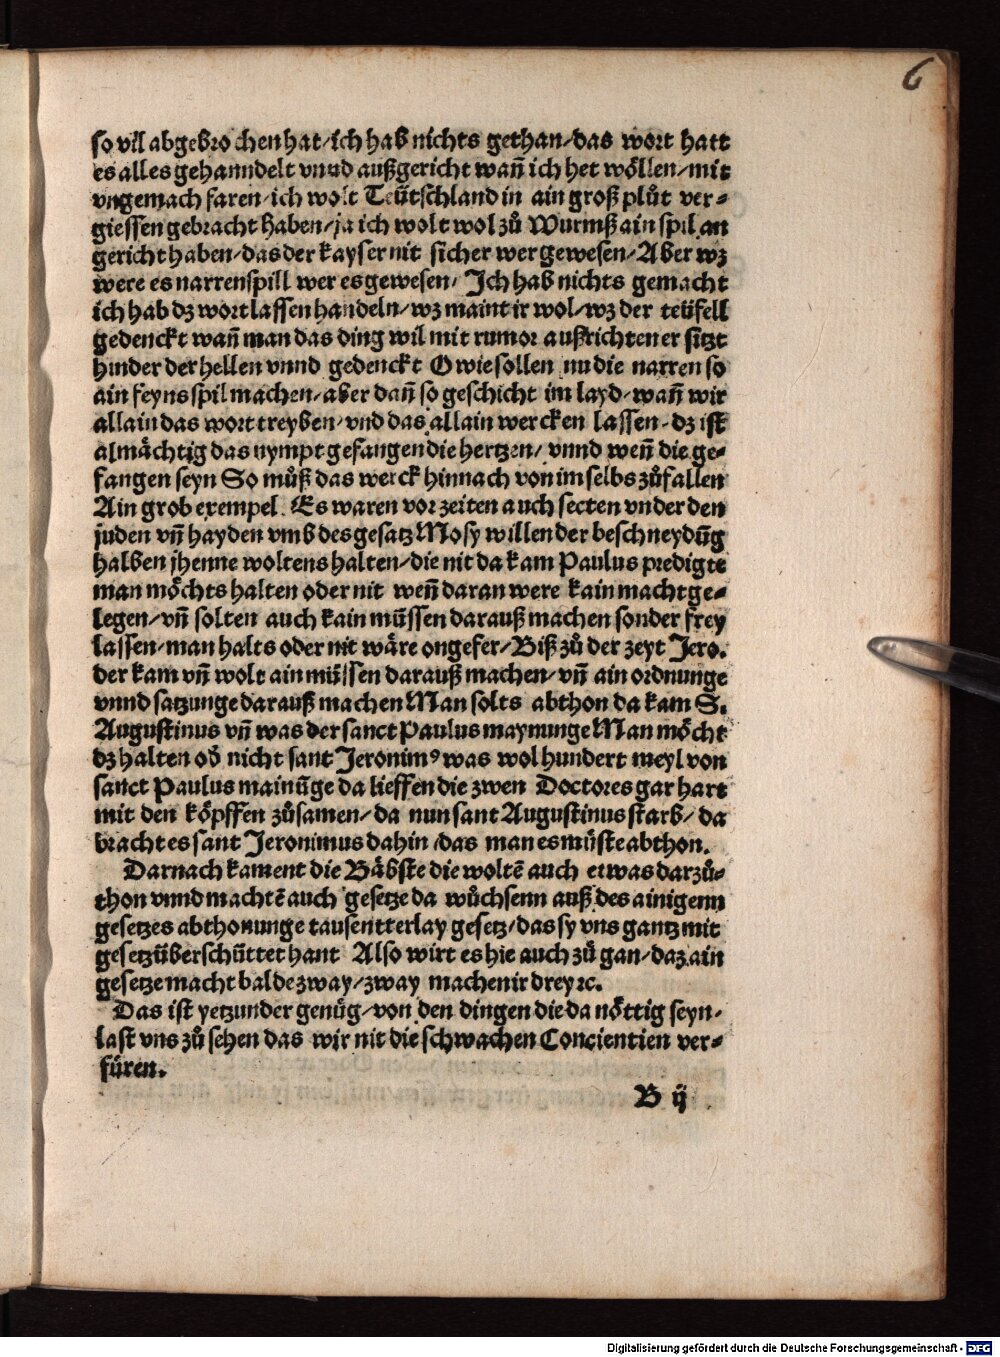 6
so vil abgebrochen hat/ich hab nichts gethan/das wort hatt
es alles gehanndelt vnnd außgericht wañ ich het wöllen/mit
vngemach faren/ich wolt Teütschland in ain groß plůt ver⸗
giessen gebracht haben/ja ich wolt wol zů Wurmß ain spil an
gericht haben/das der kayser nit sicher wer gewesen/Aber wz
were es narrenspill wer es gewesen/Ich hab nichts gemacht
ich hab dz wort lassen handeln/wz maint ir wol/wz der teüfell
gedenckt wañ man das ding wil mit rumor außrichten er sitzt
hinder der hellen vnnd gedenckt O wie sollen nu die narren so
ain feyns spil machen/aber dañ so geschicht im layd/wañ wir
allain das wort treyben/vnd das allain wercken lassen/dz ist
almächtig das nympt gefangen die hertzen/vnnd weñ die ge⸗
fangen seyn So můß das werck hinnach von im selbs zůfallen
Ain grob exempel. Es waren vor zeiten auch secten vnder den
juden vñ hayden vmb des gesatz Mosy willen der beschneydūg
halben jhenne woltens halten/die nit da kam Paulus predigte
man möchts halten oder nit weñ daran were kain macht ge⸗
legen/vñ solten auch kain müssen darauß machen sonder frey
lassen/man halts oder nit wäre ongefer/Biß zů der zeyt Jero.
der kam vñ wolt ain müssen darauß machen/vñ ain ordnunge
vnnd satzunge darauß machen Man solts abthon da kam S.
Augustinus vñ was der sanct Paulus maynunge Man möcht
dz halten ob nicht sant Jeronimꝰ was wol hundert meyl von
sanct Paulus mainūge da lieffen die zwen Doctores gar hart
mit den köpffen zůsamen/da nun sant Augustinus starb/da
bracht es sant Jeronimus dahin/das man es müste abthon.
Darnach kament die Bäbste die woltē auch etwas darzů⸗
thon vnnd machtē auch gesetze da wůchsenn auß des ainigenn
gesetzes abthonunge tausentterlay gesetz/das sy vns gantz mit
gesetz überschüttet hant Also wirt es hie auch zů gan/daz ain
gesetze macht balde zway/zway machen ir drey ꝛc.
Das ist yetzunder genůg/von den dingen die da nöttig seyn/
last vns zů sehen das wir nit die schwachen Concientien ver⸗
füren.
B ij
Digitalisierung gefördert durch die Deutsche Forschungsgemeinschaft - DFG